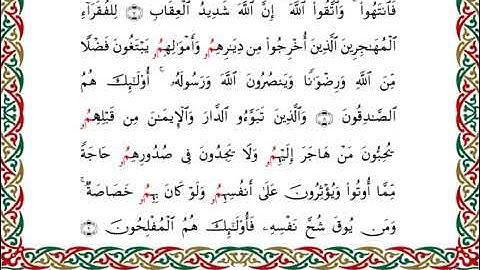 فَٱنتَهُوا۟ ۚ وَٱتَّقُوا۟ ٱللَّهَ ۖ إِنَّ ٱللَّهَ شَدِيدُ ٱلْعِقَابِ لِلْفُقَرَآءِ
ٱلْمُهَٰجِرِينَ ٱلَّذِينَ أُخْرِجُوا۟ مِن دِيَٰرِهِمُۥ وَأَمْوَٰلِهِمُۥ يَبْتَغُونَ فَضْلًا
مِّنَ ٱللَّهِ وَرِضْوَٰنًا وَيَنصُرُونَ ٱللَّهَ وَرَسُولَهُۥٓ ۚ أُو۟لَٰٓئِكَ هُمُ
ٱلصَّٰدِقُونَ وَٱلَّذِينَ تَبَوَّءُو ٱلدَّارَ وَٱلْإِيمَٰنَ مِن قَبْلِهِمُۥ
يُحِبُّونَ مَنْ هَاجَرَ إِلَيْهِمُۥ وَلَا يَجِدُونَ فِى صُدُورِهِمُۥ حَاجَةً
مِّمَّآ أُوتُوا۟ وَيُؤْثِرُونَ عَلَىٰٓ أَنفُسِهِمُۥ وَلَوْ كَانَ بِهِمُۥ خَصَاصَةٌ ۚ
وَمَن يُوقَ شُحَّ نَفْسِهِۦ فَأُو۟لَٰٓئِكَ هُمُ ٱلْمُفْلِحُونَ